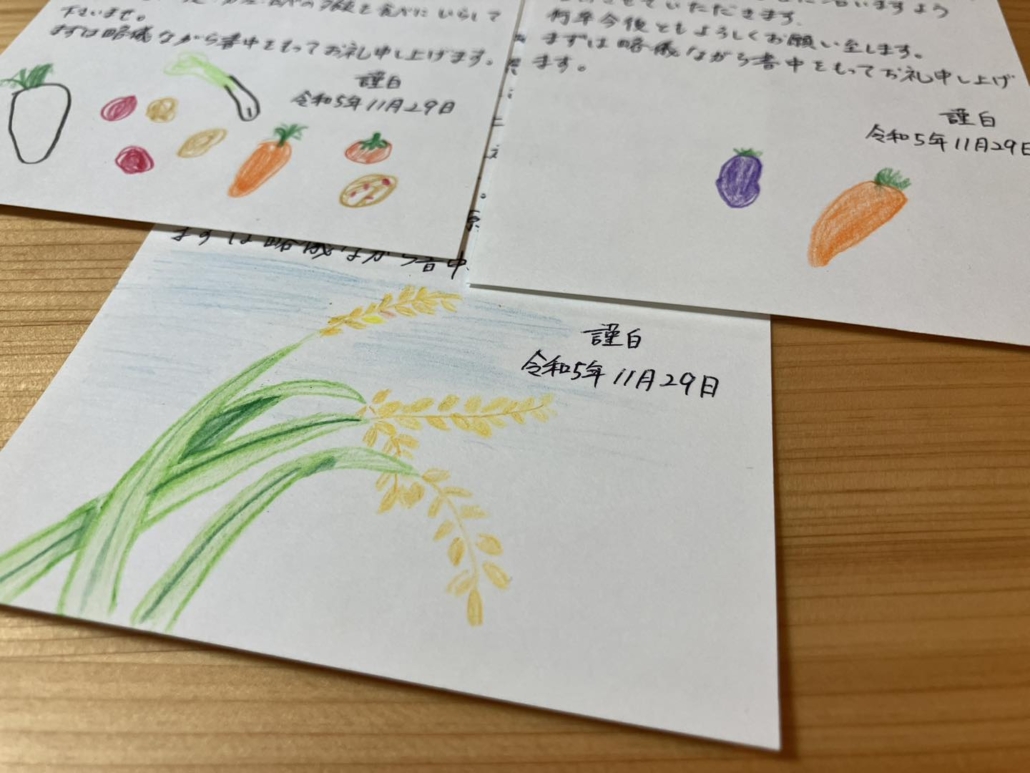 を食べにいらして
下さいませ。
まずは略儀ながら書中をもってお礼申し上げます。
謹白
令和5年11月29日
させていただきます。
何卒今後ともよろしくお願い致します。
まずは略儀ながら書中をもってお礼申し上げ
ます。
謹白
令和5年11月29日
まずは略儀ながら書中
謹白
令和5年11月29日